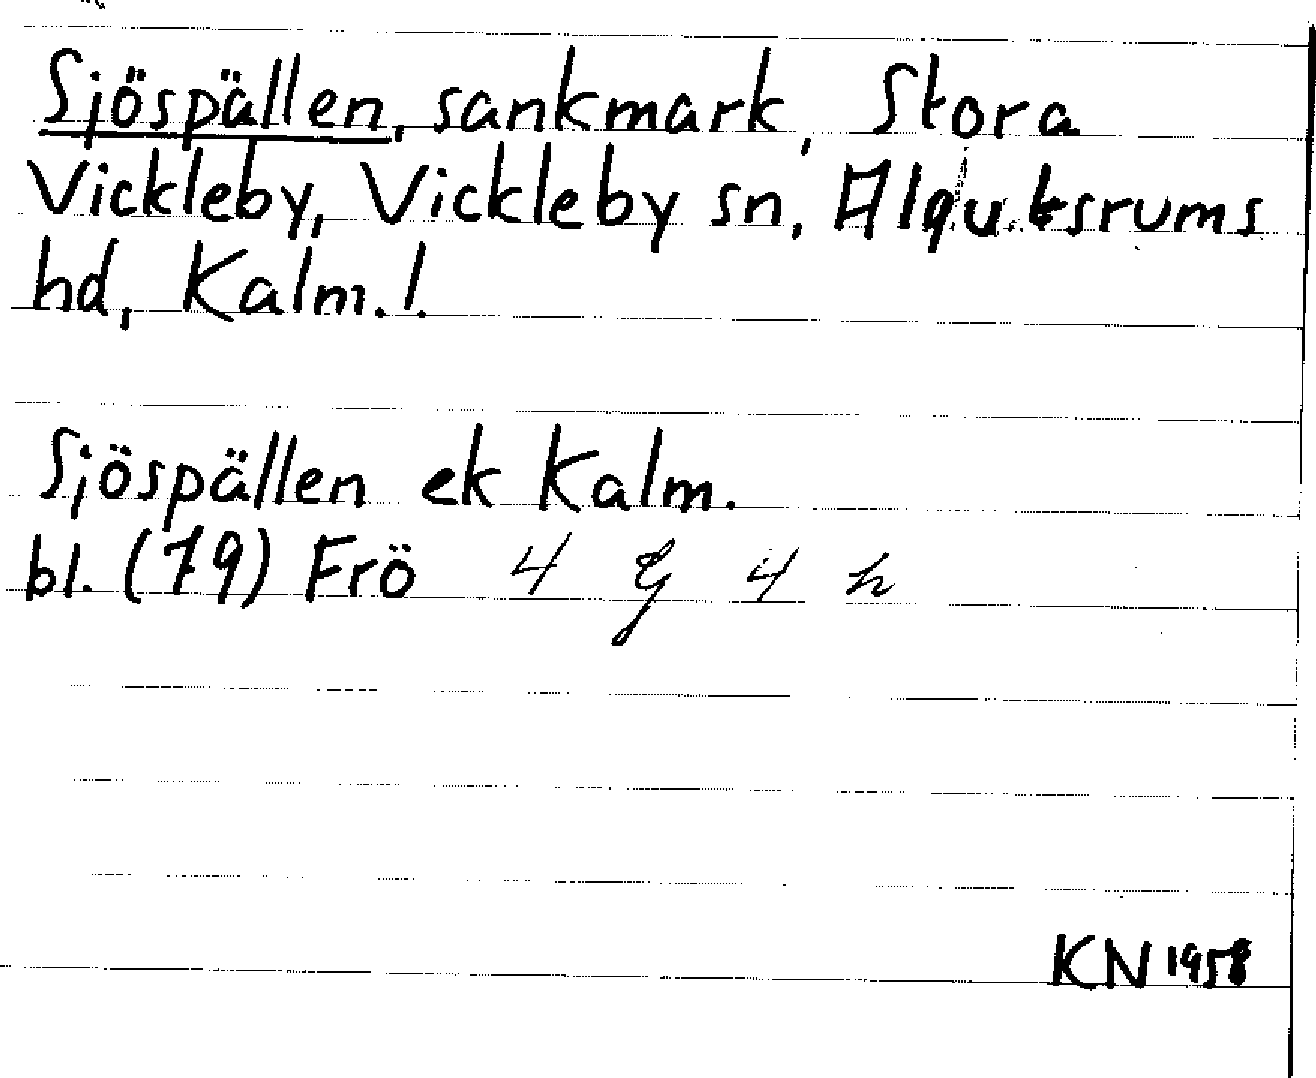 Sjöspällen, sankmark, Stora
Vickleby, Vickleby sn, Algutsrums
hd, Kalm. l.
Sjöspällen ek Kalm.
bl. (79) Frö 4 g 4 h
KN 1958